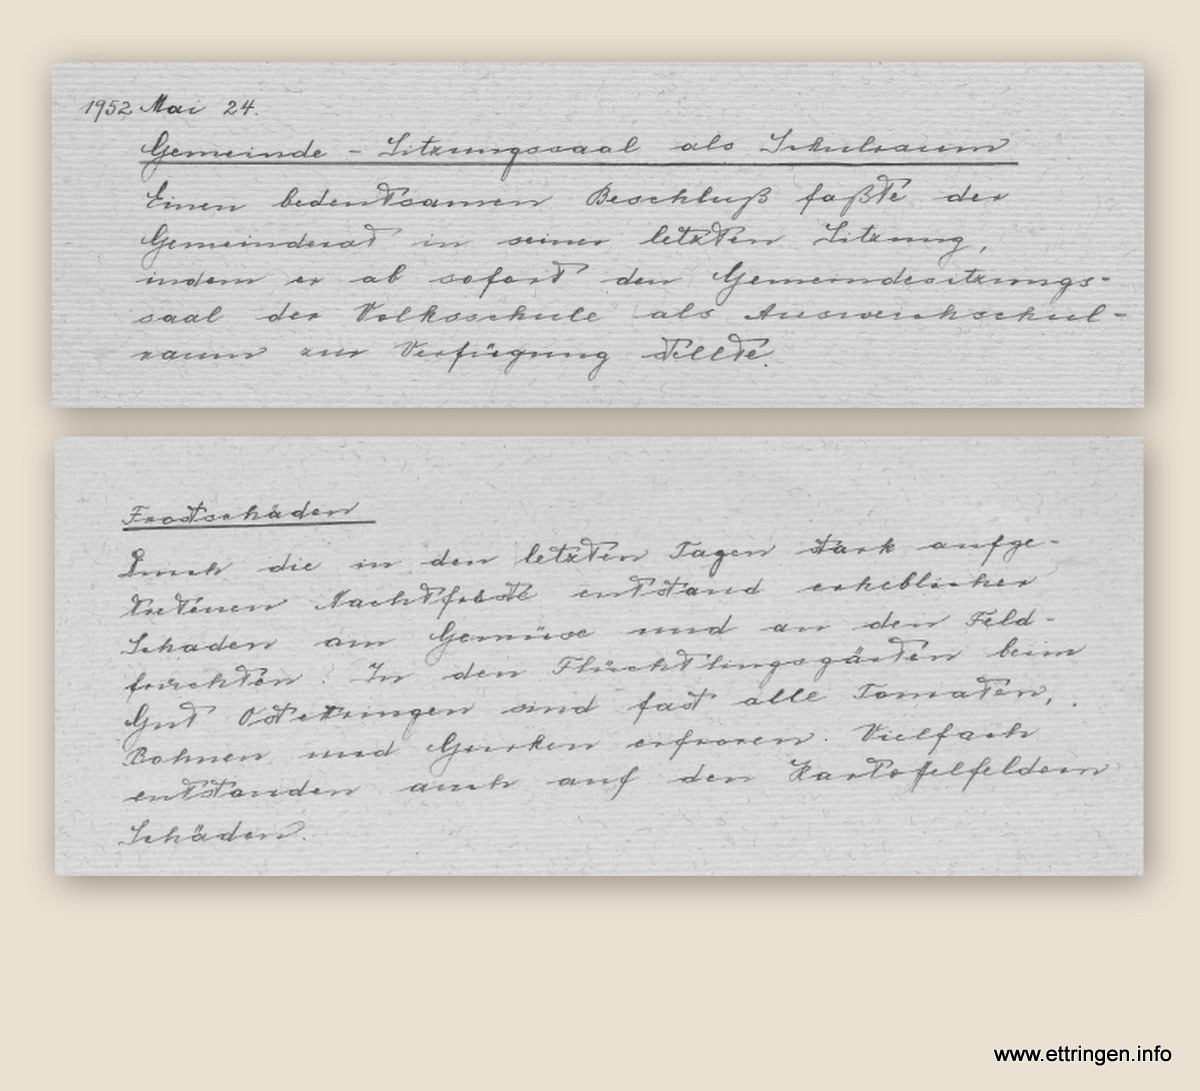 1952 Mai 24.
Gemeinde - Sitzungssaal als Schulraum
Einen bedeutsamen Beschluß faßte der
Gemeinderat in seiner letzten Sitzung,
indem er ab sofort den Gemeindesitzungs-
saal der Volksschule als Ausweichschul-
raum zur Verfügung stellte.
Frostschäden
Durch die in den letzten Tagen stark aufge-
tretenen Nachtfröste entstand erheblicher
Schaden am Gemüse und an den Feld-
früchten. In den Flüchtlingsgärten beim
Gut Ostettringen sind fast alle Tomaten,
Bohnen und Gurken erfroren. Vielfach
entstanden auch auf den Kartoffelfeldern
Schäden.
www.ettringen.info